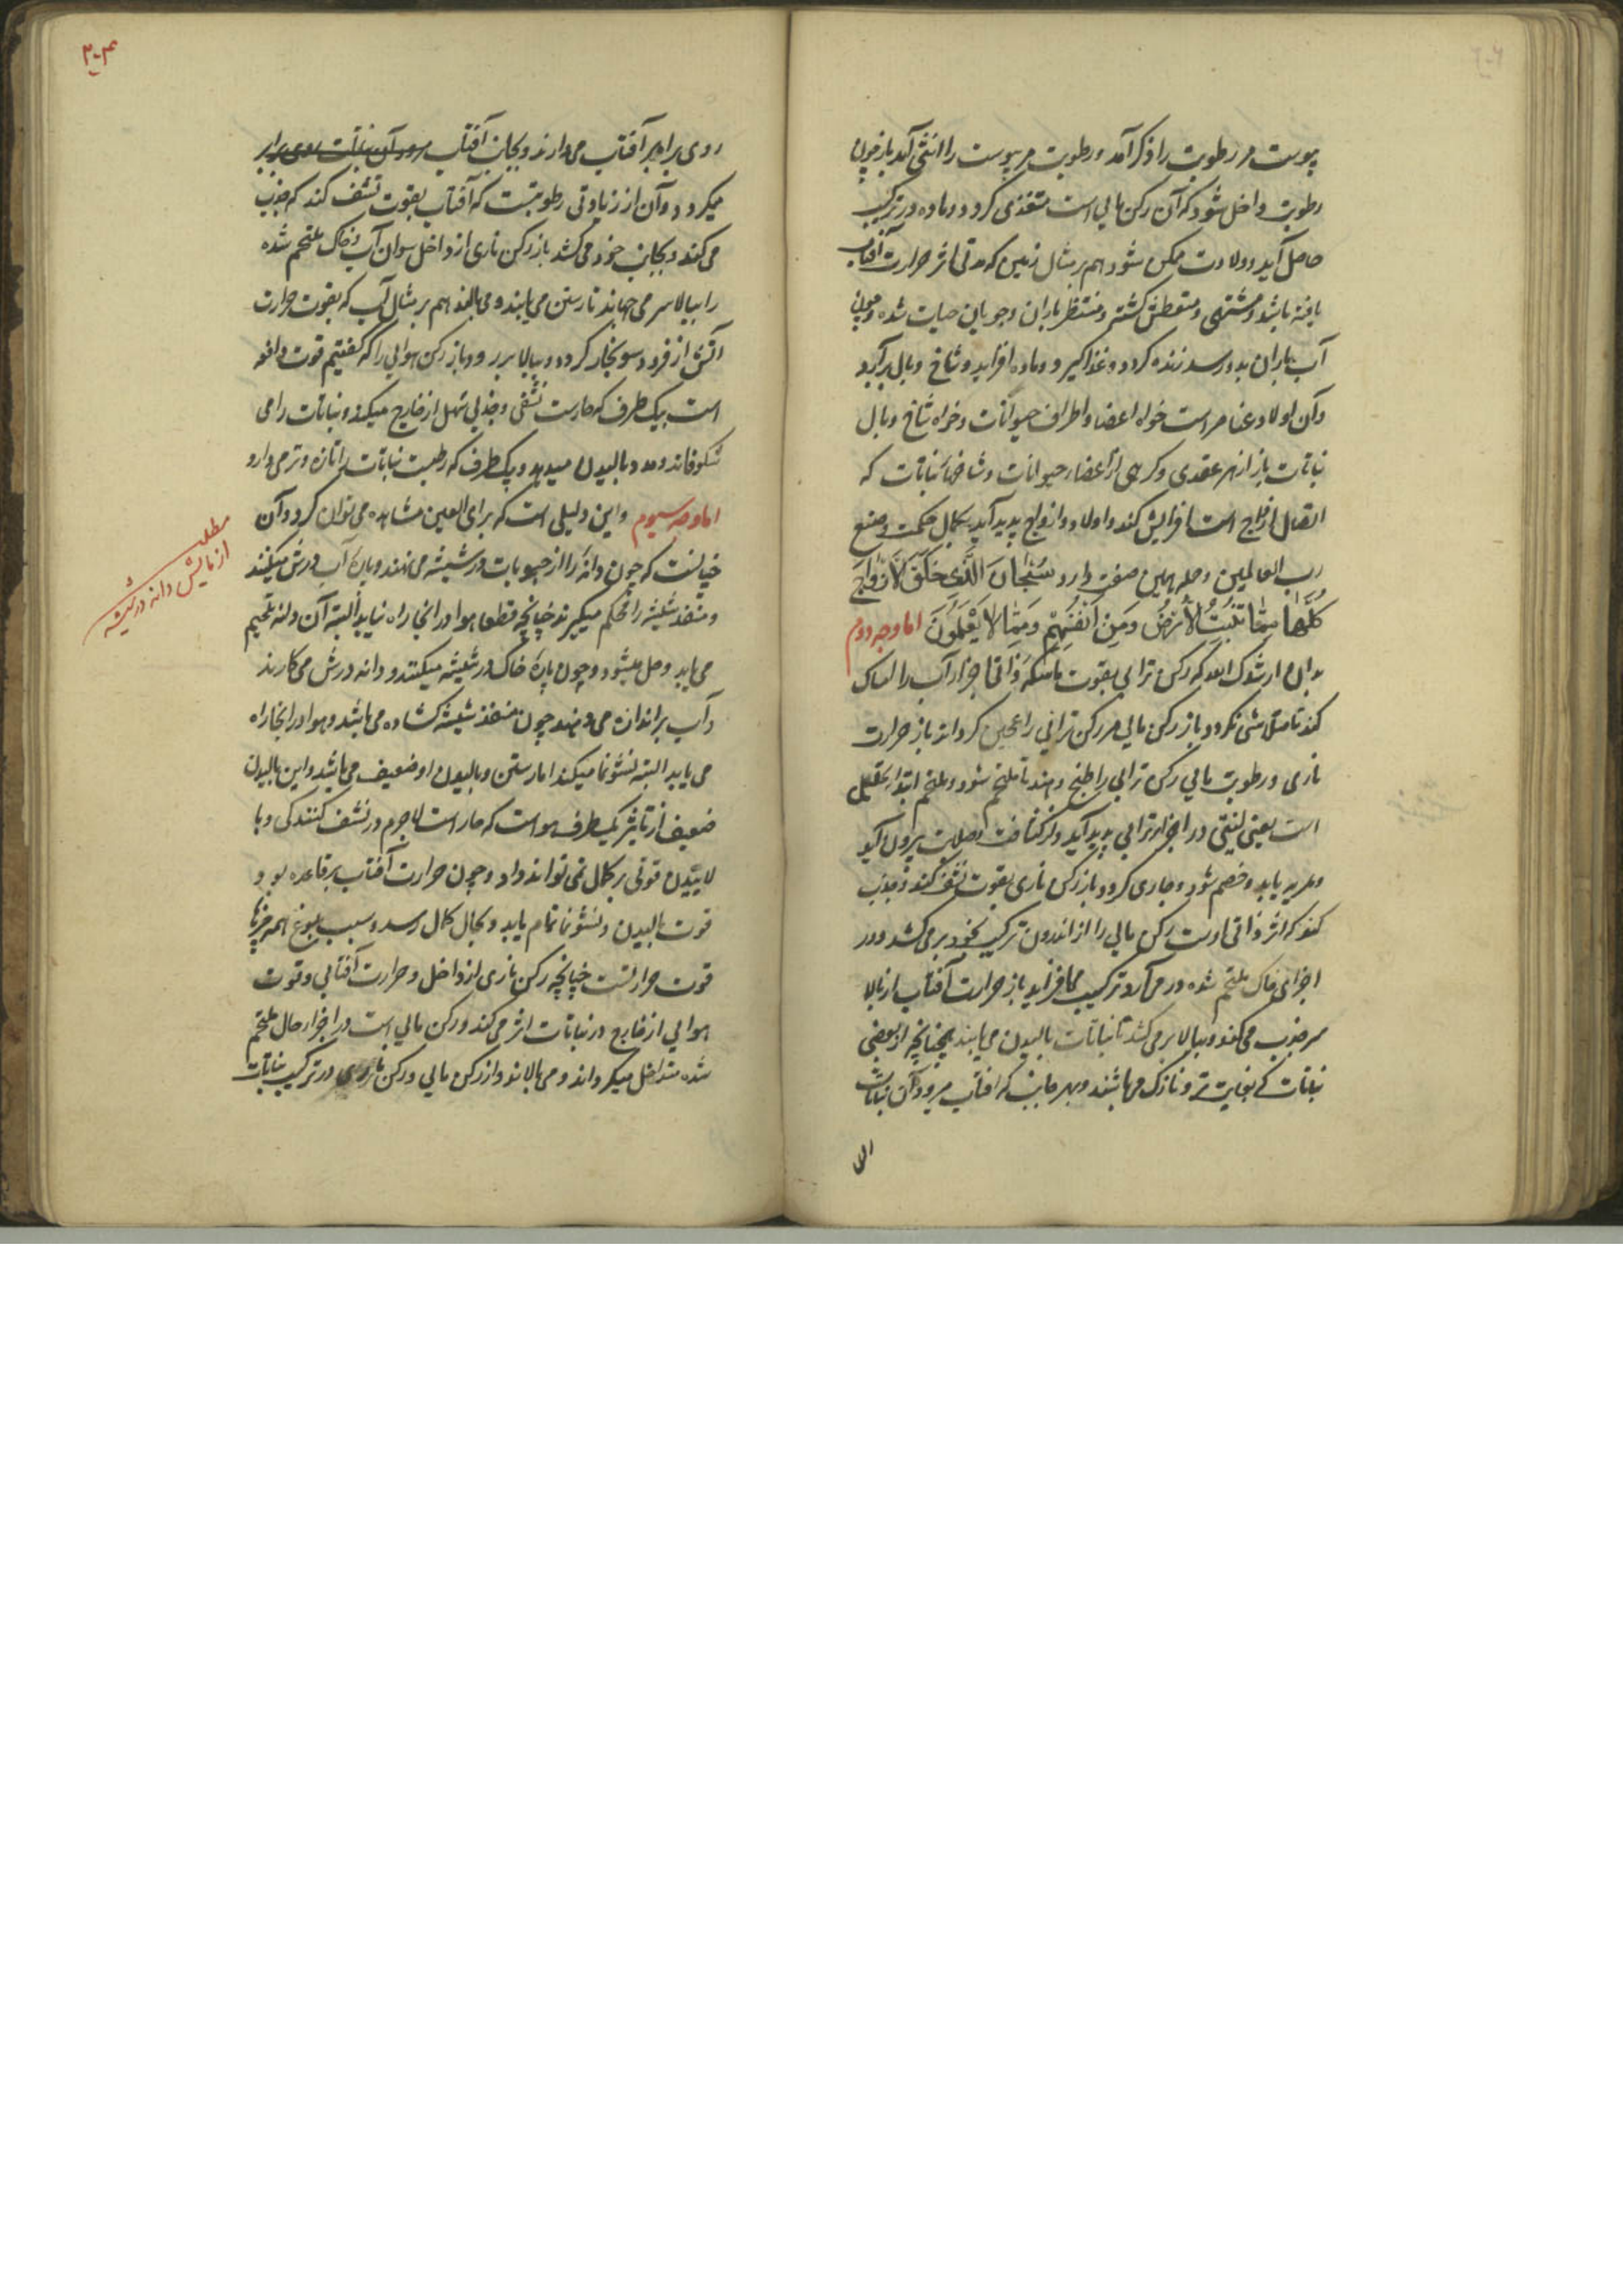 پوست مر رطوبت را ذکر آمد و رطوبت مر پوست را انثی آید باز چون
رطوبت داخل شود که آن رکن مایی است متغذی کردد و ماده در ترکیب
حاصل آید و ولادت ممکن شود هم بر مثال زمین که مدتی اثر حرارت آفتاب
یافته باشد و مشتهی و متعطش کشته و منتظر باران و جویان حیات شده و چون
آب باران بدو رسد زنده کردد و غذا کیرد و ماده افزاید و شاخ و بال برآرد
و آن اولاد عناصر است خواه اعضا و اطراف حیوانات و خواه شاخ و بال
نباتات باز از هر عقدی و کرهی از اعضاء حیوانات و شاخهاء نباتات که
اتصال ازواج است افزایش کند و اولاد و ازواج پدید آید بکمال حکمت و صنع
رب العالمین و جمله بهمین صفت دارد سُبْحَانَ الَّذِي خَلَقَ الْأَزْوَاجَ
كُلَّهَا مِمَّا تُنْبِتُ الْأَرْضُ وَمِنْ أَنْفُسِهِمْ وَمِمَّا لَا يَعْلَمُونَ اما وجه دوم
بدان ارشدک الله که رکن ترابی بقوت ماسکه ذاتی اجزاء آب را امساک
کند تا متلاشی نکردد باز رکن مایی مر رکن ترابی را عجین کرداند باز حرارت
ناری و رطوبت مایی رکن ترابی را طبخ دهند تا ملتحم شود و ملتحم ابتداء
است یعنی لینتی در اجزاء ترابی پدید آید و از کثافت و صلابت بیرون آید
و هضم شود و جاری کردد باز رکن ناری بقوت نشف کند و جذب
کند که اثر ذاتی اوست رکن مایی را از اندرون ترکیب بخود بر می کشد و در
اجزای خاک ملتحم شده در می آرد و ترکیب می افزاید باز حرارت آفتاب از بالا
سر جذب می کند و ببالا بر می کشد تا نباتات بالیدن می یابند چنانچه از بعضی
نباتات که بغایت تر و نازک می باشند و بهر جانب که آفتاب میرود آن نباتات
روی برابر آفتاب می دارند و بجانب آفتاب میرود آن نباتات روی برابر
میکردد و آن از زیادتی رطوبتست که آفتاب بقوت نشف کند که جذب
می کند و بجانب خود می کشد باز رکن ناری از داخل سوان آب و خاک ملتحم شده
را ببالا سر می جهاند تا رستن می یابند و می بالند هم بر مثال آب که بقوت حرارت
آتش از فرود سو بخار کردد و ببالا بر رود و باز رکن هوایی را که کفتیم قوت دافعه
است بیک طرف که حارست نشفی و جذبی سهل از خارج میکند و نباتات را می
شکوفاند و مدد بالیدن میدهد و بیک طرف که رطبست نباتات را تازه و تر می دارد
اما وجه سیوم و این دلیلی است که برای العین مشاهده می توان کرد و آن
چنانست که چون دانهٔ را از حبوبات در شیشه می نهند و پارهٔ آب درش میکنند
و منفذ شیشه را محکم میکیرند چنانچه قطعا هوا در آنجا راه نیابد البته آن دانه تلحیم
می یابد و حل میشود و چون پارهٔ خاک در شیشه میکنند و دانه درش می کارند
و آب براندازه می دهند چون منفذ شیشه کشاده می باشد و هوا در آنجا راه
می یابد البته نشو نما میکند اما رستن و بالیدن او ضعیف می باشد و این بالیدن
ضعیف از تاثیر یکطرف هواست که حار است لاجرم در نشف کنندکی و با
لاییدن قوتی بر کمال نمی تواند داد و چون حرارت آفتاب بر قاعده بود
قوت بالیدن و نشو نما تمام یابد و بحال کمال رسد و سبب بلوغ همه چیزها
قوت حرارتست چنانچه رکن ناری از داخل و حرارت آفتابی و قوت
هوایی از خارج در نباتات اثر می کند و رکن مایی است در اجزاء حال ملتحم
شده متداخل میکرداند و می بالاند و از رکن مایی و رکن ناری در ترکیب نباتات
مطلب
ازمایش دانه در شیشه